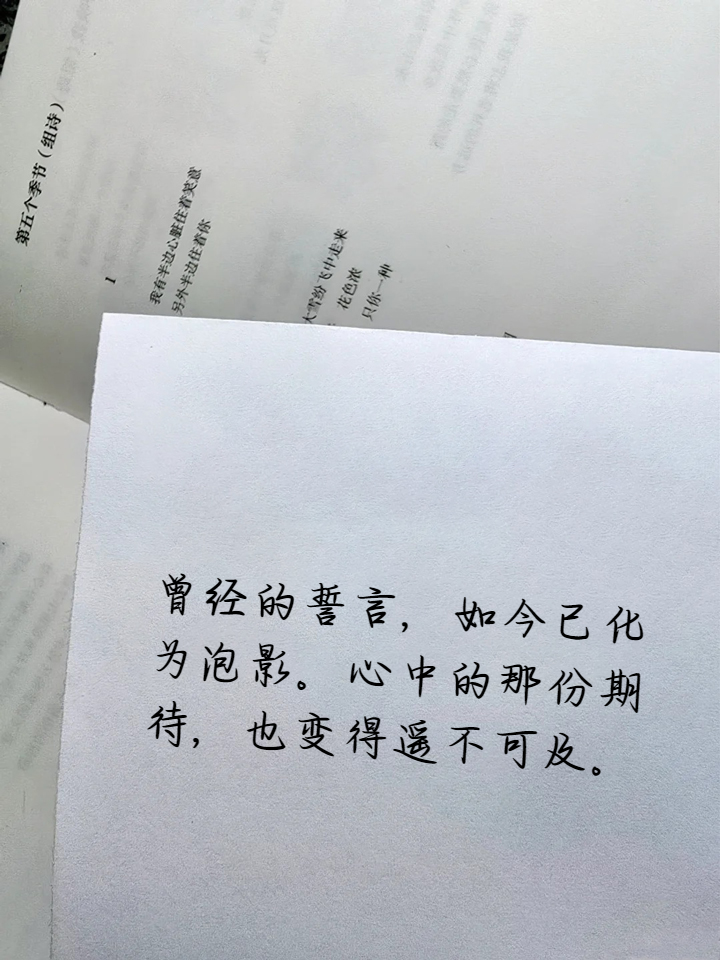 第五个季节（组诗）
1
我有半边心脏住着笑意
另外半边住着你
大雪纷飞中走来
花色浓
只你一种
曾经的誓言，如今已化
为泡影。心中的那份期
待，也变得遥不可及。